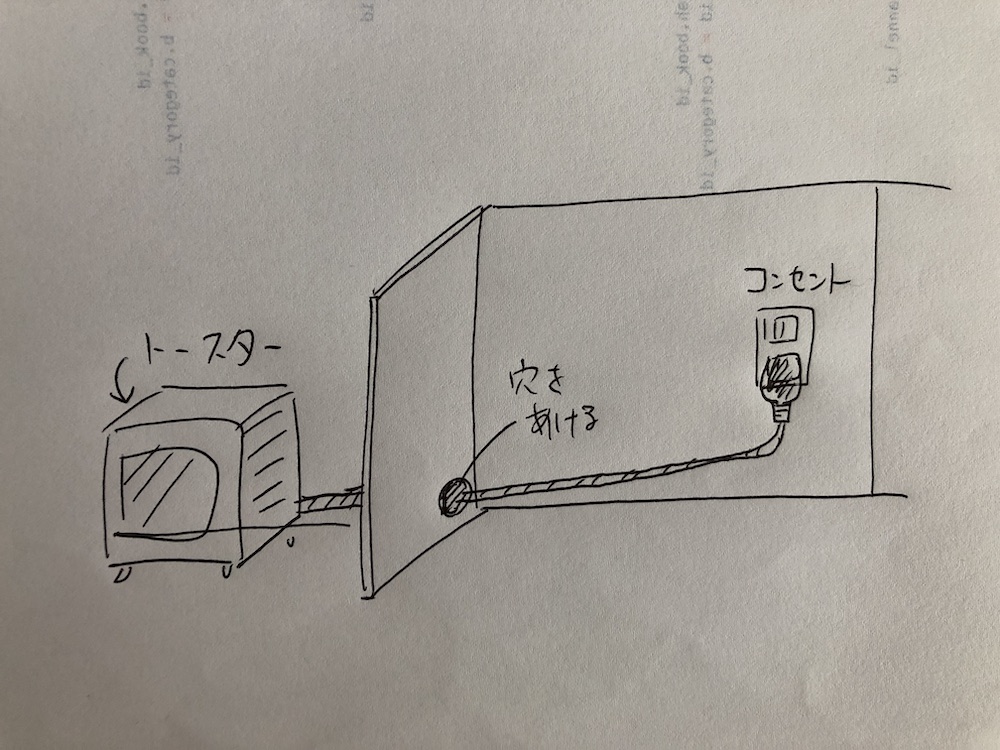 トースター
コンセント
穴を
あける